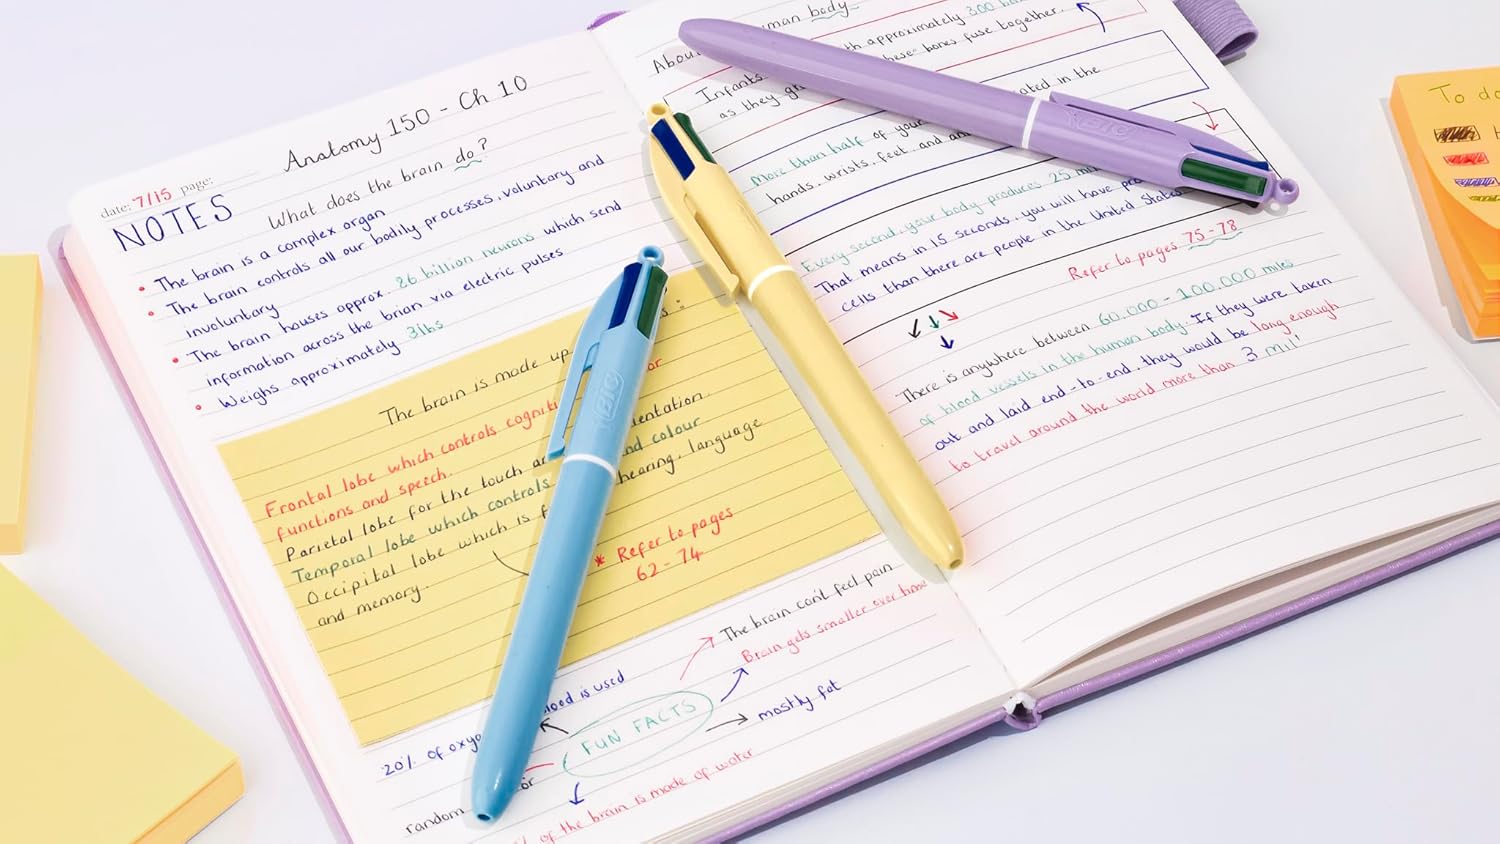 Anatomy 150 - Ch 10
date: 7/15 page:
NOTES
What does the brain do?
The brain is a complex organ
The brain controls all our bodily processes, voluntary and
involuntary
The brain houses approx. 86 billion neurons which send
information across the brian via electric pulses
Weighs approximately 3lbs
The brain is made up
Frontal lobe which controls
functions and speech.
Parietal lobe for the touch
Temporal lobe which controls and colour
Occipital lobe which is hearing, language
and memory.
* Refer to pages
62 - 74
The brain can't feel pain
Brain gets smaller over time
mostly fat
is used
20% of
FUN FACTS
random
of the brain is made of water
human body
approximately 300
Infants these bones fuse together.
as they
in the
More than half of your
hands, wrists, feet and
Every second, your body produces 25
That means in 15 seconds, you will have
cells than there are people in the United States
Refer to pages 75 - 78
There is anywhere between 60,000 - 100,000 miles
of blood vessels in the human body. If they were taken
out and laid end-to-end, they would be long enough
to travel around the world more than 3
To do
BIC
BIC